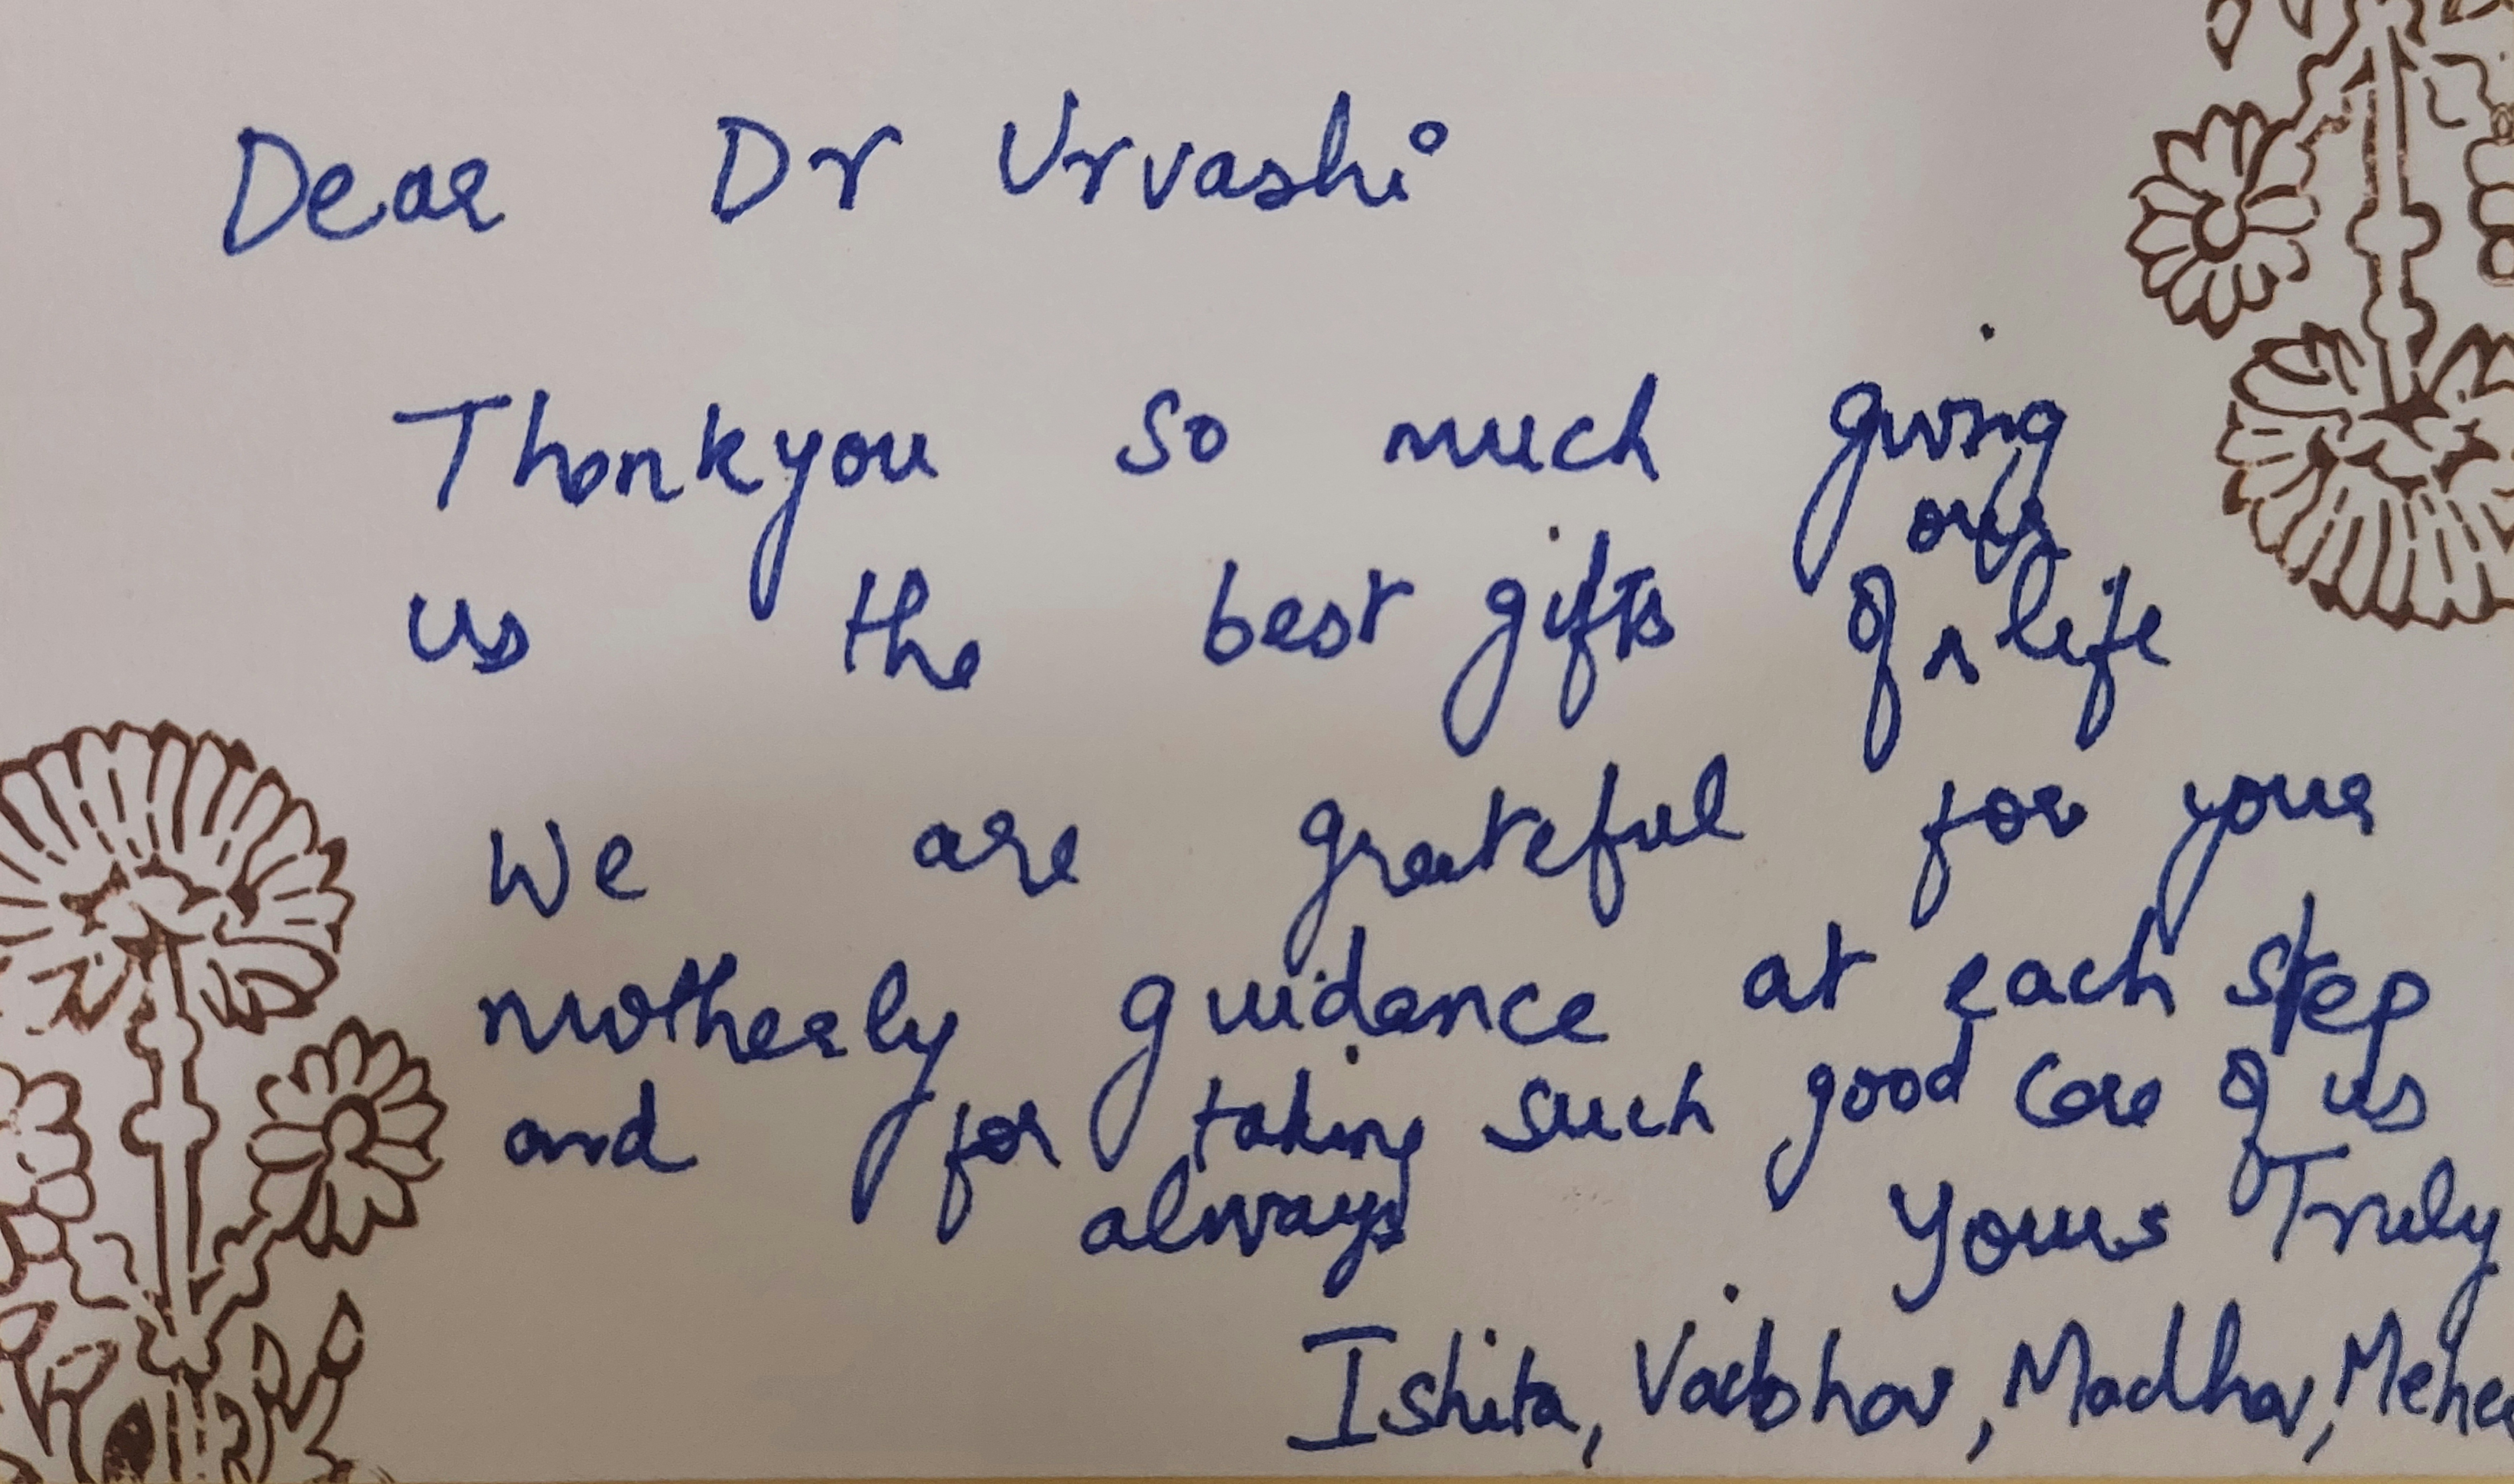 Dear Dr Urvashi
Thankyou so much giving
us the best gifts of our life
We are grateful for your
motherly guidance at each step
and for taking such good care of us
always Yours Truly
Ishita, Vaibhav, Madhav,